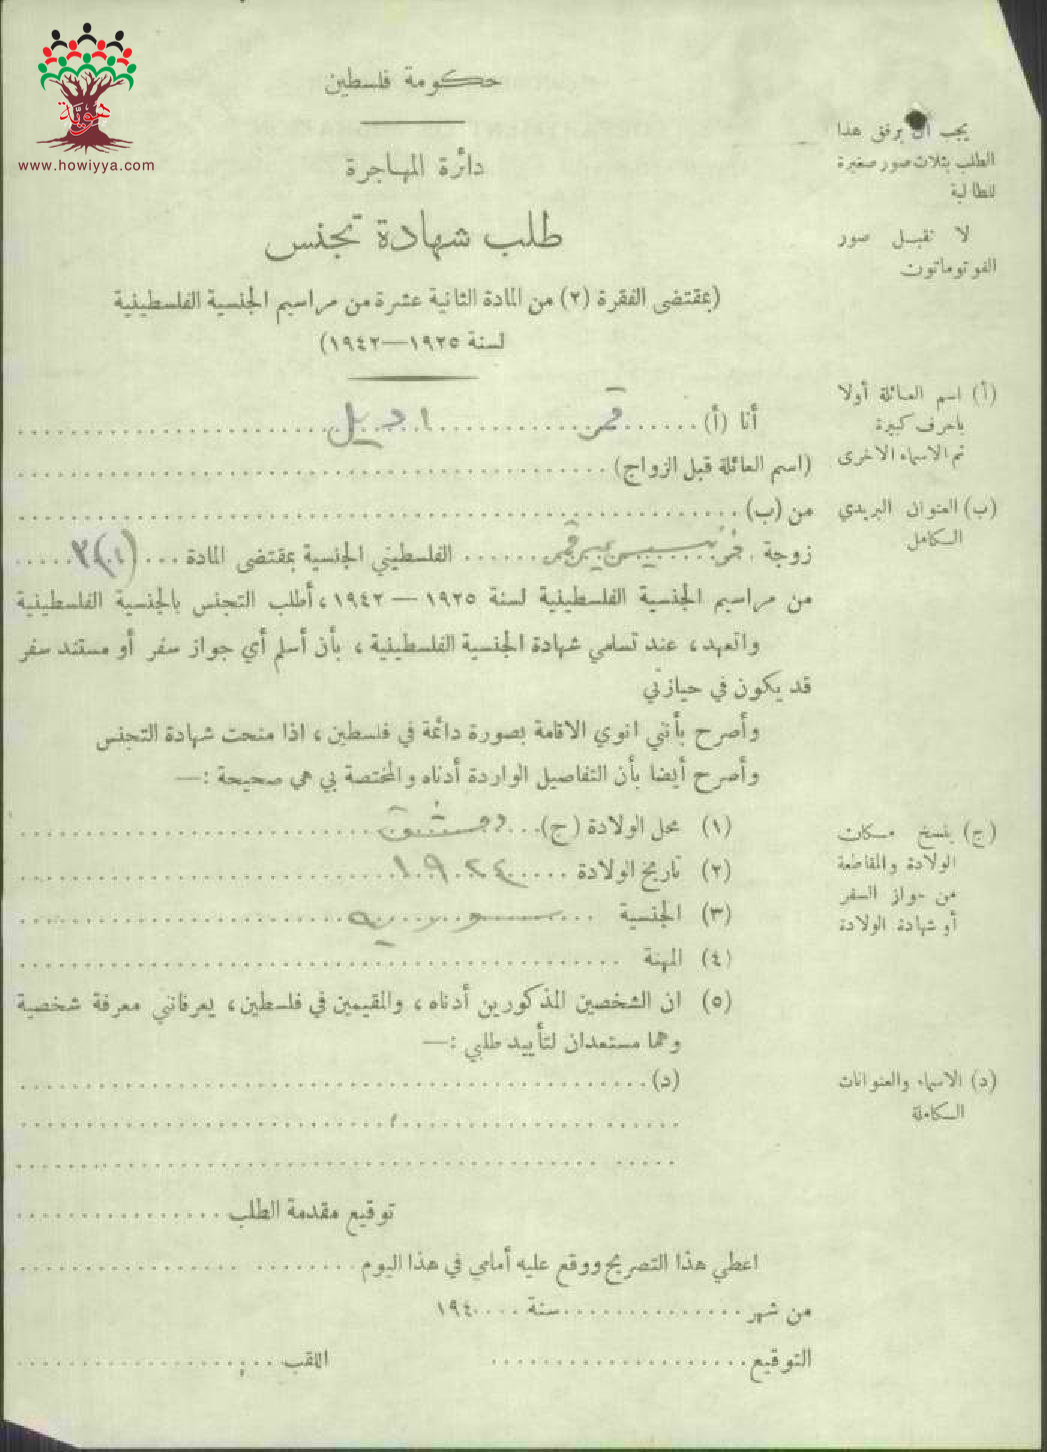 هوية
www.howiyya.com
حكومة فلسطين
دائرة المهاجرة
طلب شهادة تجنس
(بمقتضى الفقرة (٢) من المادة الثانية عشرة من مراسيم الجنسية الفلسطينية
لسنة ١٩٢٥—١٩٤٢)
يجب ان يرفق هذا
الطلب بثلاث صور صغيرة
للطالبة
لا تقبل صور
الفوتوماتون
(أ) اسم العائلة أولا
باحرف كبيرة
ثم الاسماء الاخرى
(ب) العنوان البريدي
الكامل
أنا (أ) قمر اديل
(اسم العائلة قبل الزواج)
من (ب)
زوجة قمر الفلسطيني الجنسية بمقتضى المادة
من مراسيم الجنسية الفلسطينية لسنة ١٩٢٥ — ١٩٤٢، أطلب التجنس بالجنسية الفلسطينية
واتعهد، عند تسلمي شهادة الجنسية الفلسطينية، بأن أسلم أي جواز سفر أو مستند سفر
قد يكون في حيازتي
وأصرح بأنني انوي الاقامة بصورة دائمة في فلسطين، اذا منحت شهادة التجنس
وأصرح أيضا بأن التفاصيل الواردة أدناه والمختصة بي هي صحيحة :—
(١) محل الولادة (ج) دمشق
(٢) تاريخ الولادة ١٩٢٤
(٣) الجنسية سوريه
(٤) المهنة
(٥) ان الشخصين المذكورين أدناه، والمقيمين في فلسطين، يعرفانني معرفة شخصية
وهما مستعدان لتأييد طلبي :—
(د)
(ج) ينسخ مكان
الولادة والمقاطعة
من جواز السفر
أو شهادة الولادة
(د) الاسماء والعنوانات
الكاملة
توقيع مقدمة الطلب
اعطي هذا التصريح ووقع عليه أمامي في هذا اليوم
من شهر سنة ١٩٤
التوقيع اللقب